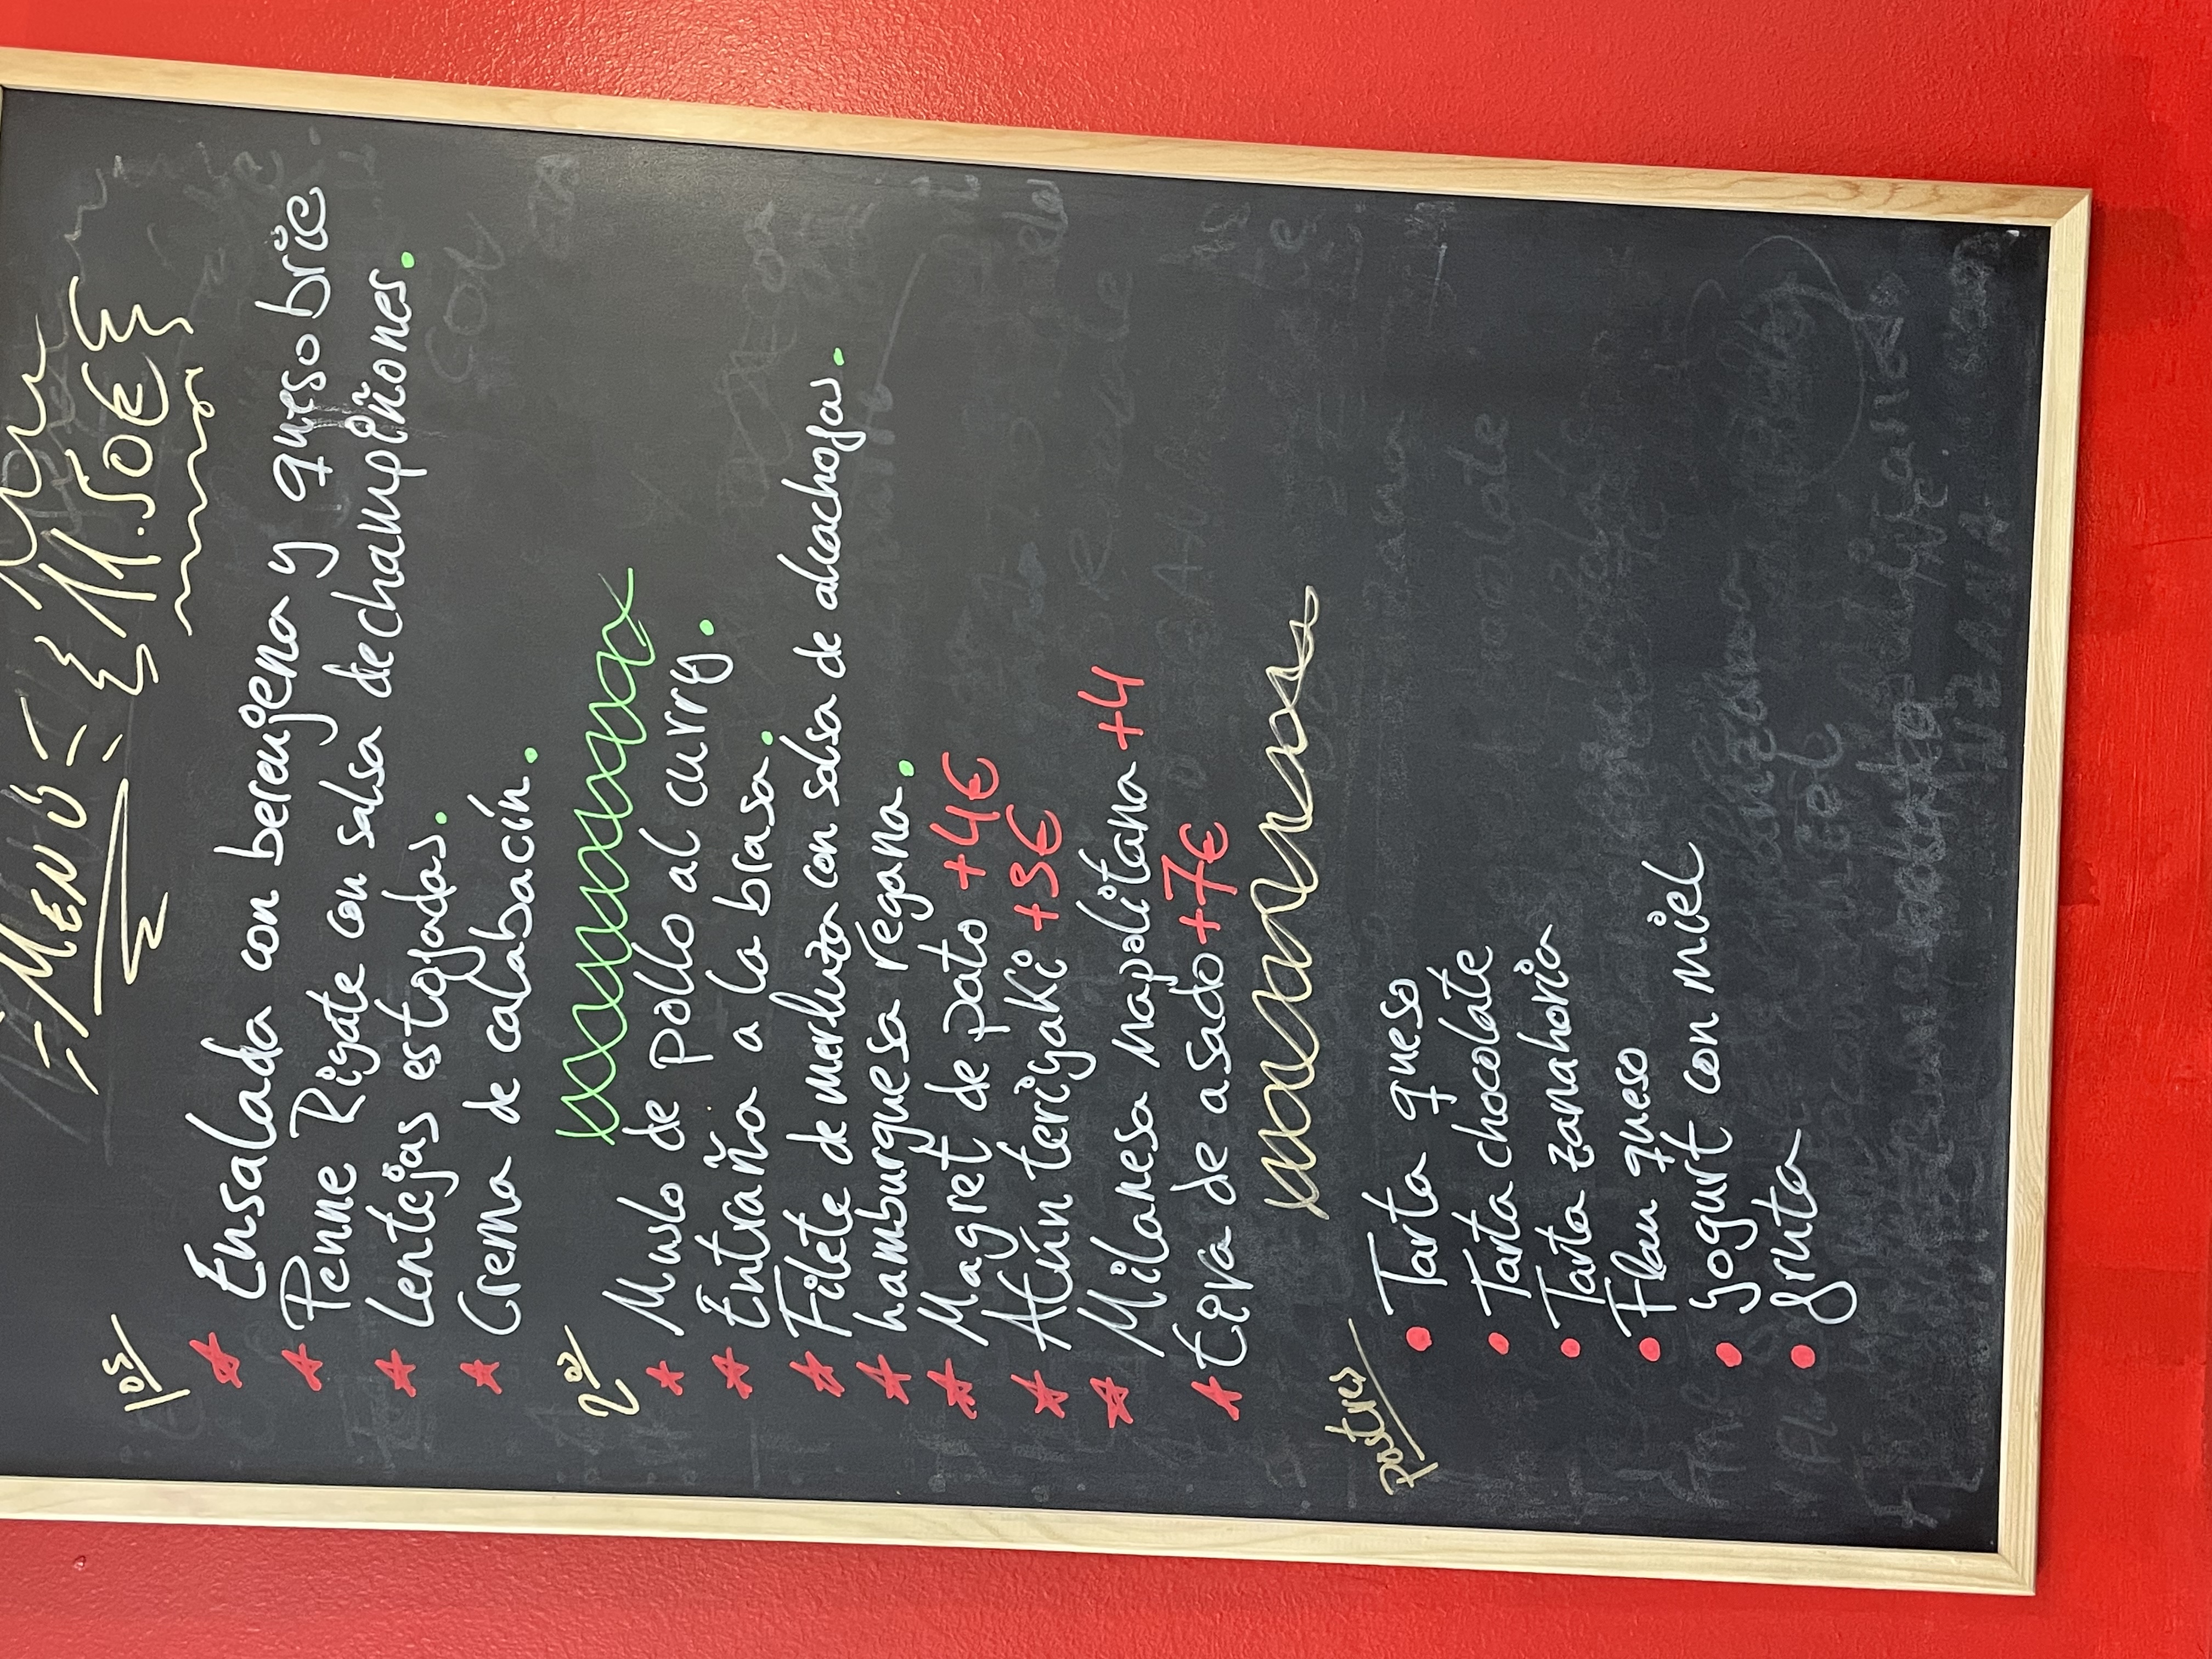 MENÚ
11.50€
1os
Ensalada con berenjena y queso brie
Penne Rigate con salsa de champiñones.
Lentejas estofadas.
Crema de calabacín.
2os
Muslo de pollo al curry.
Entraña a la brasa.
Filete de merluza con salsa de alcachofas.
hamburguesa vegana.
Magret de pato +4€
Atún teriyaki +3€
Milanesa napolitana +4
tira de asado +7€
postres
Tarta queso
Tarta chocolate
Tarta zanahoria
Flan queso
yogurt con miel
fruta